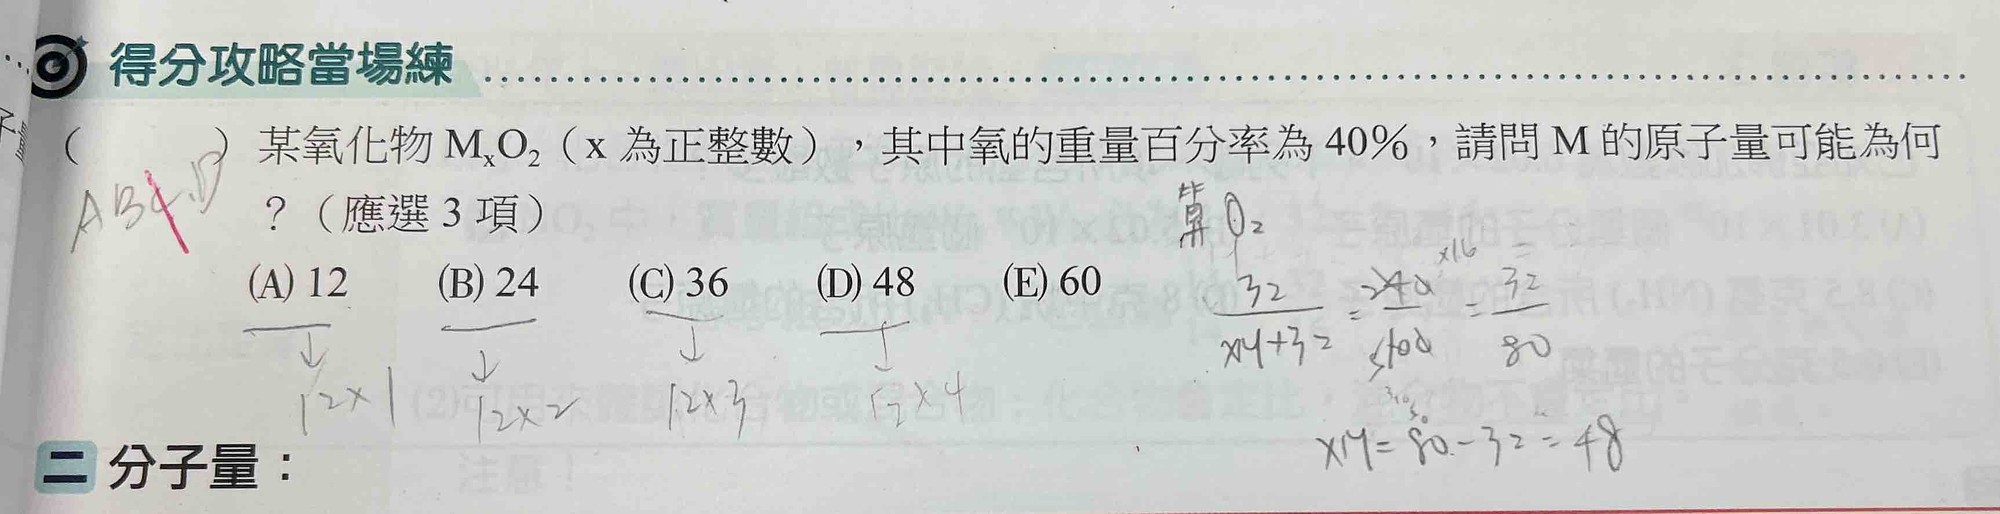 得分攻略當場練
( ABC.D ) 某氧化物 MₓO₂（x 為正整數），其中氧的重量百分率為 40%，請問 M 的原子量可能為何
？（應選 3 項）
算 O₂
(A) 12 (B) 24 (C) 36 (D) 48 (E) 60
12×1 12×2 12×3 12×4
×16
32/xM+32 = 40/100 = 32/80
xM = 80 - 32 = 48
二 分子量：